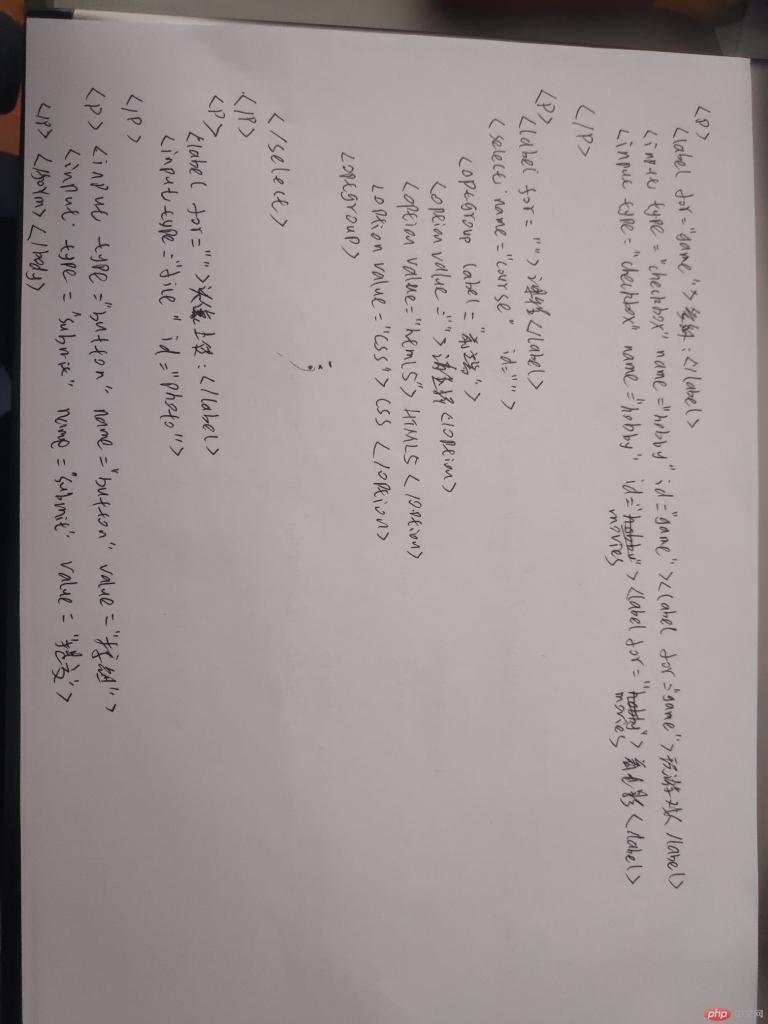 <P>
<label for="game">爱好:</label>
<input type="checkbox" name="hobby" id="game"><label for="game">玩游戏</label>
<input type="checkbox" name="hobby" id="movies"><label for="movies">看电影</label>
</P>
<P>
<label for="">课程</label>
<select name="course" id="">
<optgroup label="前端">
<option value="">请选择</option>
<option value="html5">HTML5</option>
<option value="css">CSS</option>
<optgroup>
</select>
</P>
<P>
<label for="">头像上传:</label>
<input type="file" id="photo">
</P>
<P><input type="button" name="button" value="按钮">
<input type="submit" name="submit" value="提交">
<form></body>
php